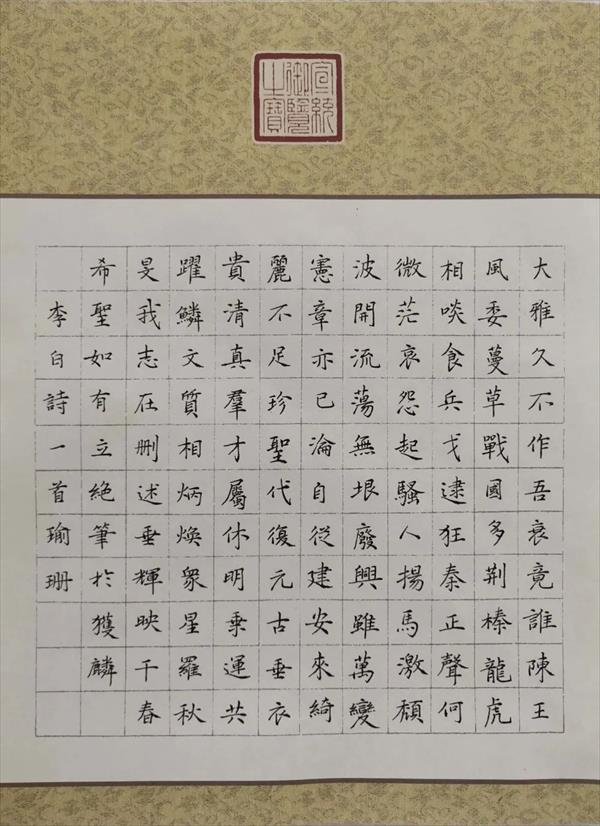 宣統
御覽
之寶
大雅久不作吾衰竟誰陳王
風委蔓草戰國多荊榛龍虎
相啖食兵戈逮狂秦正聲何
微茫哀怨起騷人揚馬激頹
波開流蕩無垠廢興雖萬變
憲章亦已淪自從建安來綺
麗不足珍聖代復元古垂衣
貴清真羣才屬休明乘運共
躍鱗文質相炳煥眾星羅秋
旻我志在刪述垂輝映千春
希聖如有立絕筆於獲麟
李白詩一首瑜珊